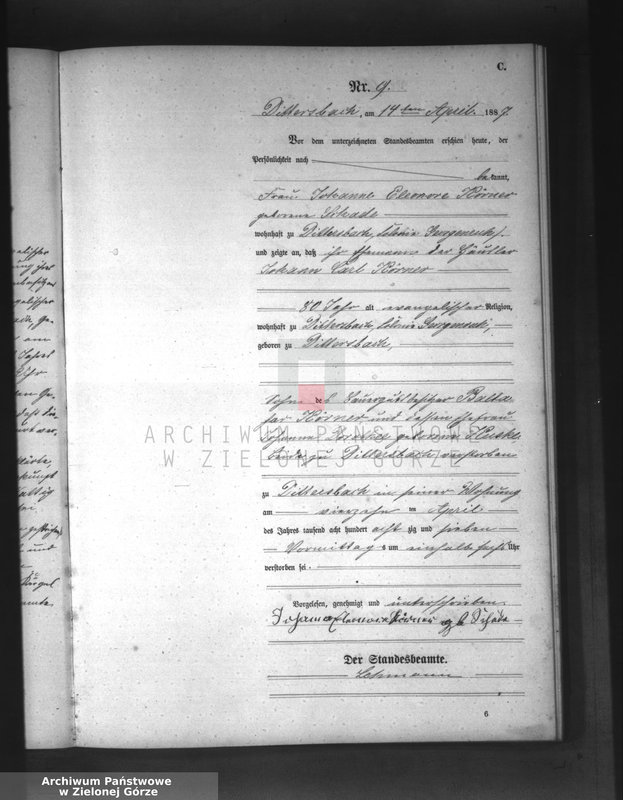 C.
Nr. 9.
Dittersbach, am 14ten April 1887.
Vor dem unterzeichneten Standesbeamten erschien heute, der
Persönlichkeit nach
bekannt,
Frau Johanne Eleonore Körner
geborene Schade
wohnhaft zu Dittersbach, Colonie
und zeigte an, daß ihr Ehemann der Häusler
Johann Carl Körner
80 Jahr alt evangelischer Religion,
wohnhaft zu Dittersbach, Colonie
geboren zu Dittersbach,
Sohn des Bauergutsbesitzer Baltha
sar Körner und dessen Ehefrau
Johanna geborene
beide zu Dittersbach verstorben
zu Dittersbach in seiner Wohnung
am vierzehn ten April
des Jahres tausend acht hundert achtzig und sieben
Vormittags um einhalb sechs Uhr
verstorben sei.
Vorgelesen, genehmigt und unterschrieben
Johanna Eleonora Körner geb Schade
Der Standesbeamte.
Lehmann
6
ARCHIWUM PAŃSTWOWE
W ZIELONEJ GÓRZE
Archiwum Państwowe
w Zielonej Górze